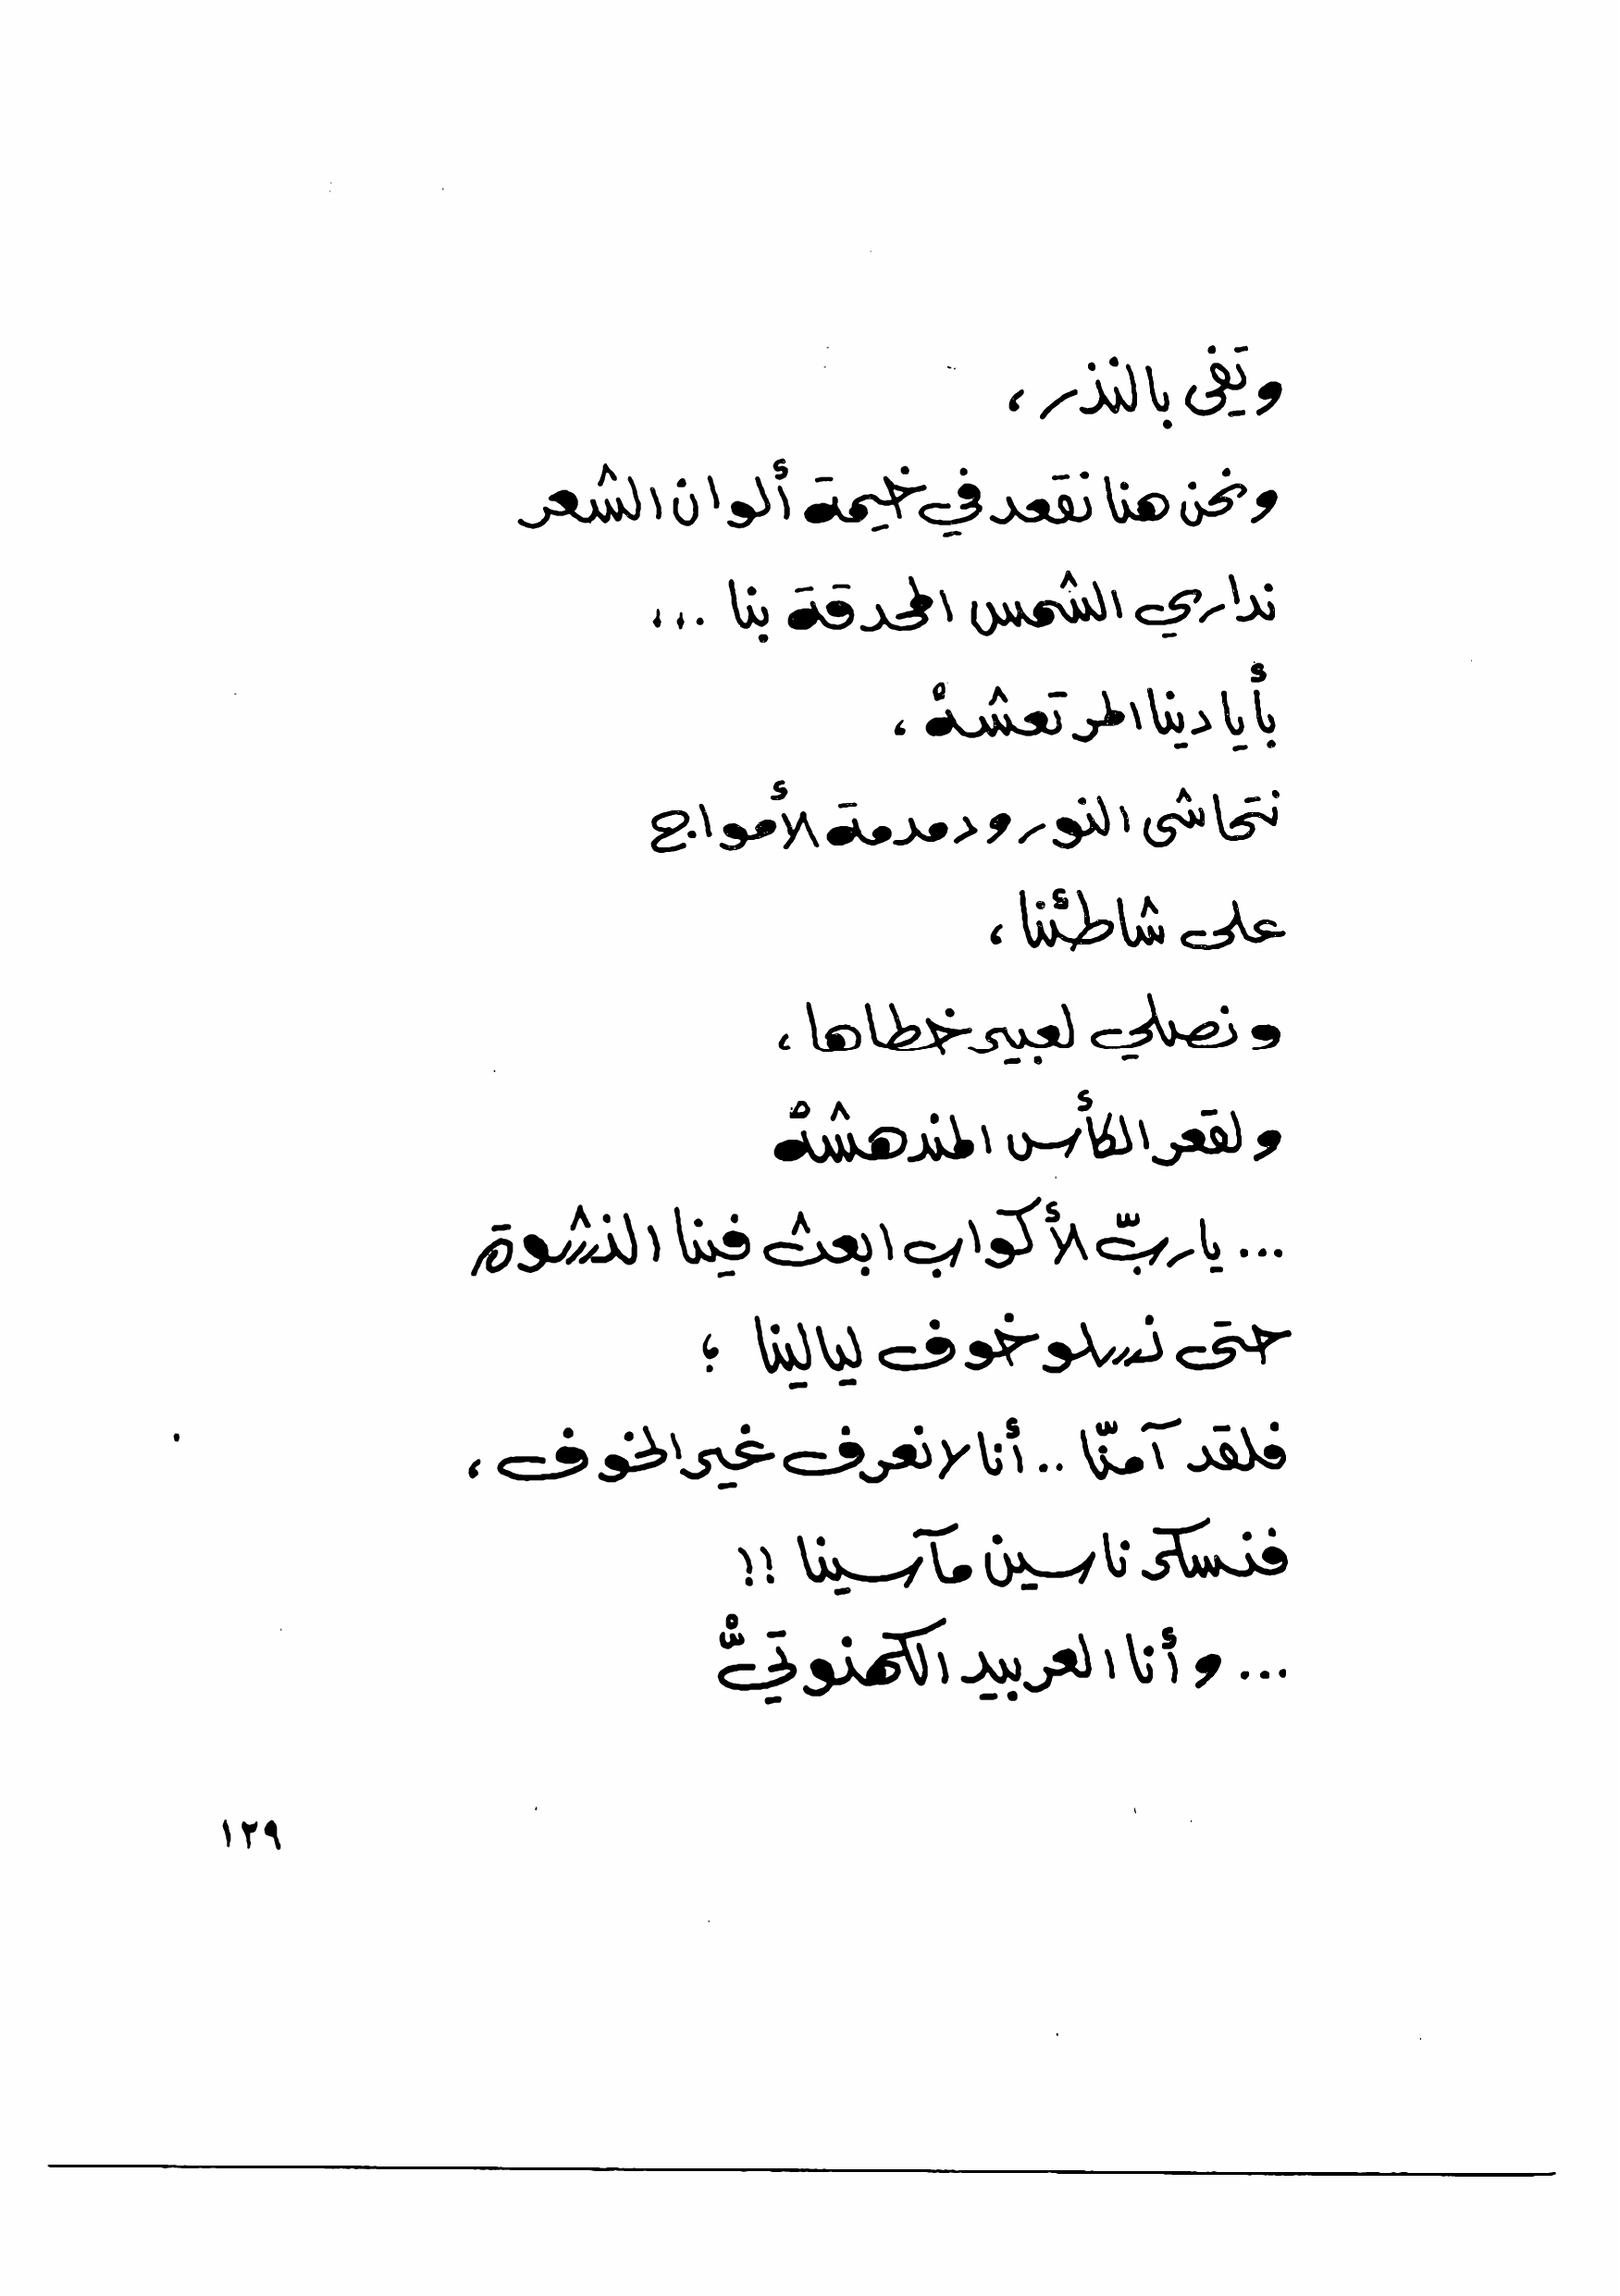 وتفى بالنذر ،
ونحن هنا نقعد في خيمة ألوان الشعر
نداري الشمس المحدقة بنا ...
بأيادينا المرتعشةْ ،
نتحاشى النور ودمدمة الأمواج
على شاطئنا ،
ونصلي لعبير خطاها ،
ولقعر الكأس المندهشةْ
... يا ربّ الأكواب ابعث فينا النشوة
حتى نسلو خوف ليالينا ؛
فلقد آمنّا .. أنا لا نعرف غير الخوف ،
فنسكر ناسين مآسينا !!
... وأنا العربيد الكهنوتيّْ
١٢٩